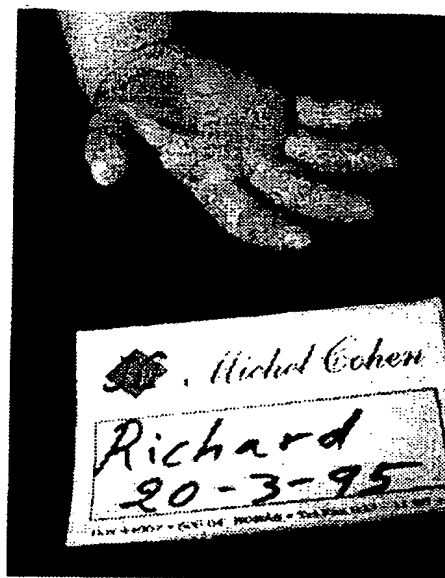 Michel Cohen
Richard
20-3-95